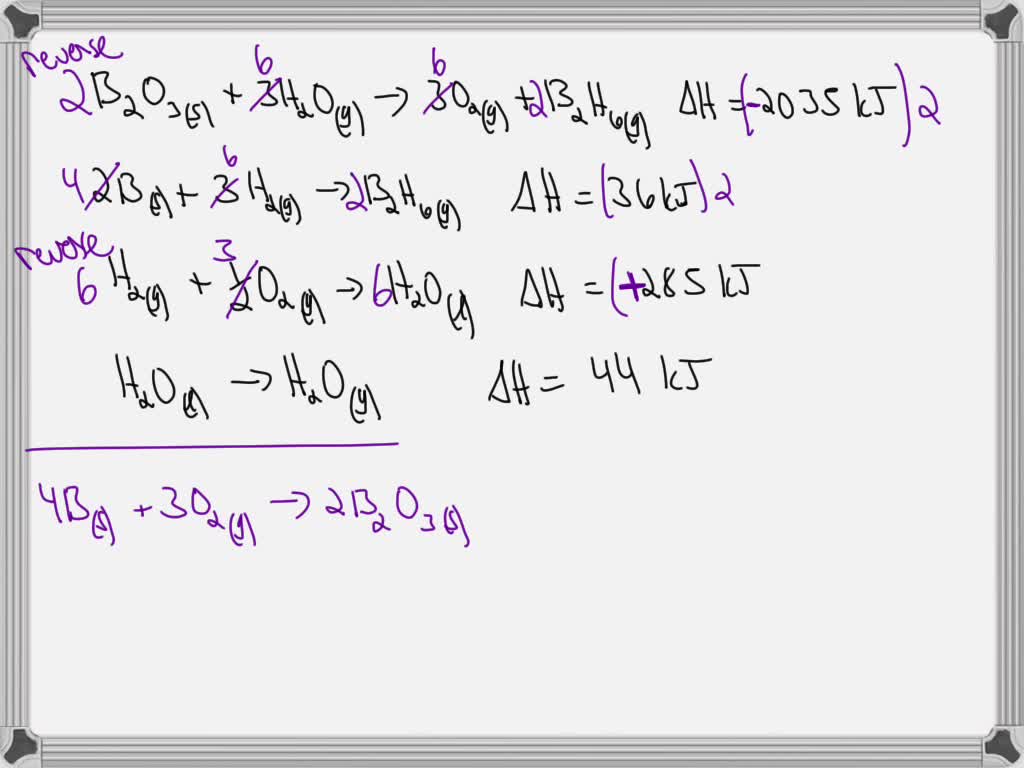 reverse
2B₂O₃(s) + 3 6 H₂O(g) → 3 6 O₂(g) + 2B₂H₆(g) ΔH = (-2035 kJ)2
4 2B(s) + 3 6 H₂(g) → 2B₂H₆(g) ΔH = (36 kJ)2
reverse
6 H₂(g) + 1/2 3 O₂(g) → 6H₂O(l) ΔH = (+285 kJ
H₂O(l) → H₂O(g) ΔH = 44 kJ
4B(s) + 3O₂(g) → 2B₂O₃(s)